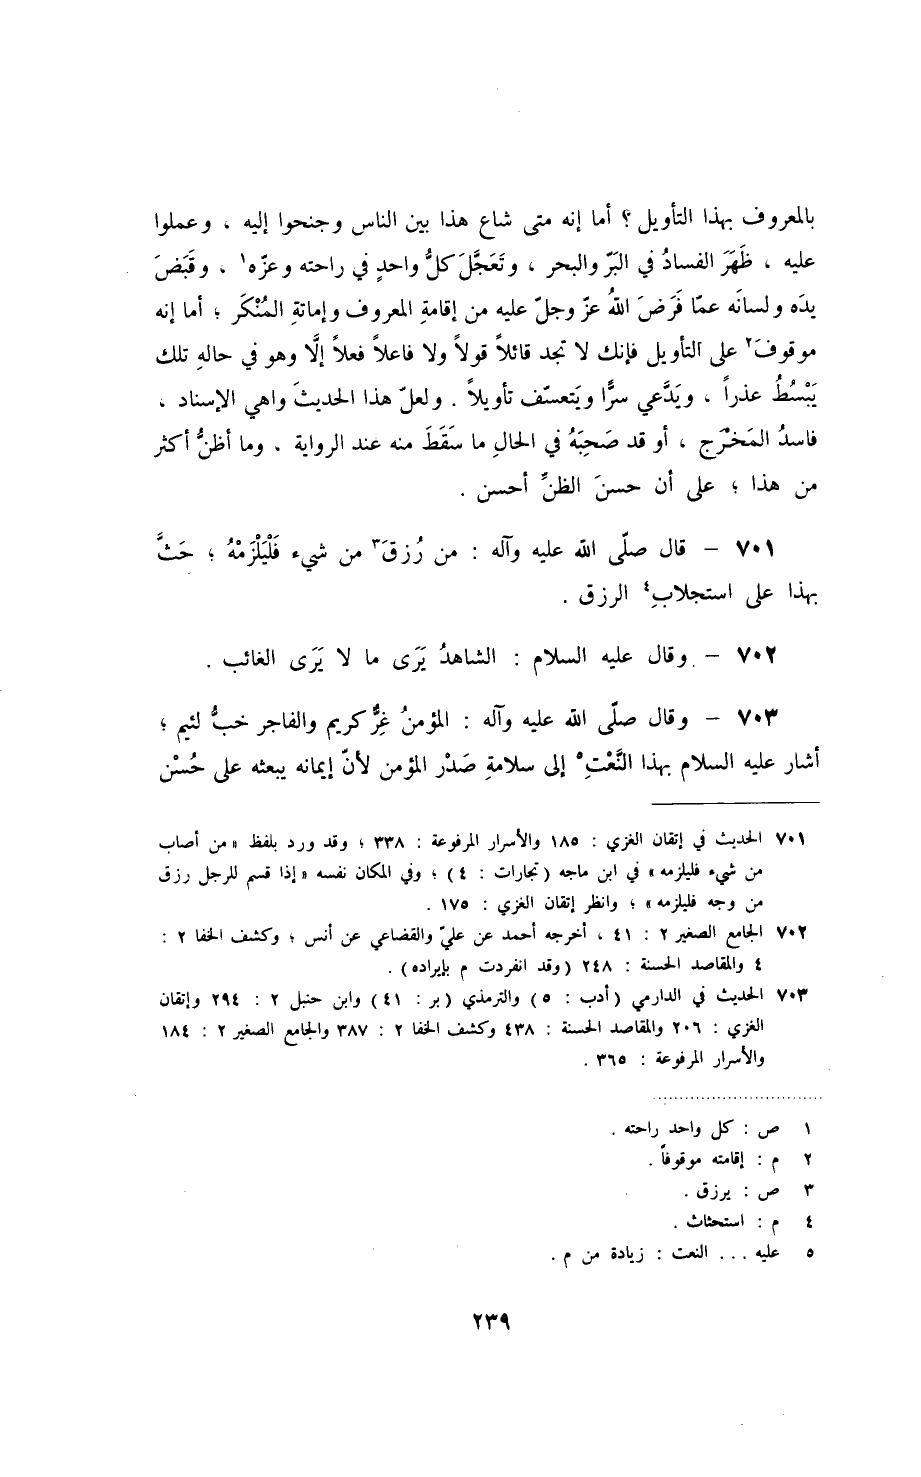 بالمعروف بهذا التأويل ؟ أما إنه متى شاع هذا بين الناس وجنحوا إليه ، وعملوا
عليه ، ظَهَرَ الفسادُ في البَرِّ والبحر ، وتَعَجَّلَ كلُّ واحدٍ في راحته وعزّه١ ، وقَبَضَ
يدَه ولسانَه عمّا فَرَضَ اللهُ عزّ وجلّ عليه من إقامةِ المعروف وإماتةِ المُنْكَر ؛ أما إنه
موقوفَ٢ على التأويل فإنك لا تجد قائلاً قولاً ولا فاعلاً فعلاً إلَّا وهو في حالهِ تلك
يَبْسُطُ عذراً ، ويَدَّعي سرًّا ويَتعسّف تأويلاً . ولعلّ هذا الحديثَ واهي الإسناد ،
فاسدُ المَخْرَج ، أو قد صَحِبَهُ في الحالِ ما سَقَطَ منه عند الرواية . وما أظنُّ أكثر
من هذا ؛ على أن حسنَ الظنِّ أحسن .
٧٠١ – قال صلّى الله عليه وآله : من رُزقَ٣ من شيء فَلْيَلْزَمْهُ ؛ حَثَّ
بهذا على استجلابِ٤ الرزق .
٧٠٢ – وقال عليه السلام : الشاهدُ يَرَى ما لا يَرَى الغائب .
٧٠٣ – وقال صلّى الله عليه وآله : المؤمنُ غِرٌّ كريم والفاجر خبٌّ لئيم ؛
أشار عليه السلام بهذا النَّعْتِ٥ إلى سلامةِ صَدْر المؤمن لأنّ إيمانه يبعثه على حُسْن
٧٠١ الحديث في إتقان الغزي : ١٨٥ والأسرار المرفوعة : ٣٣٨ ؛ وقد ورد بلفظ « من أصاب
من شيء فليلزمه » في ابن ماجه (تجارات : ٤) ؛ وفي المكان نفسه « إذا قسم للرجل رزق
من وجه فليلزمه » ؛ وانظر إتقان الغزي : ١٧٥ .
٧٠٢ الجامع الصغير ٢ : ٤١ ، أخرجه أحمد عن عليّ والقضاعي عن أنس ؛ وكشف الخفا ٢ :
٤ والمقاصد الحسنة : ٢٤٨ (وقد انفردت م بإيراده) .
٧٠٣ الحديث في الدارمي (أدب : ٥) والترمذي (بر : ٤١) وابن حنبل ٢ : ٢٩٤ وإتقان
الغزي : ٢٠٦ والمقاصد الحسنة : ٤٣٨ وكشف الخفا ٢ : ٣٨٧ والجامع الصغير ٢ : ١٨٤
والأسرار المرفوعة : ٣٦٥ .
١ ص : كل واحد راحته .
٢ م : إقامته موقوفاً .
٣ ص : يرزق .
٤ م : استحثاث .
٥ عليه ... النعت : زيادة من م .
٢٣٩